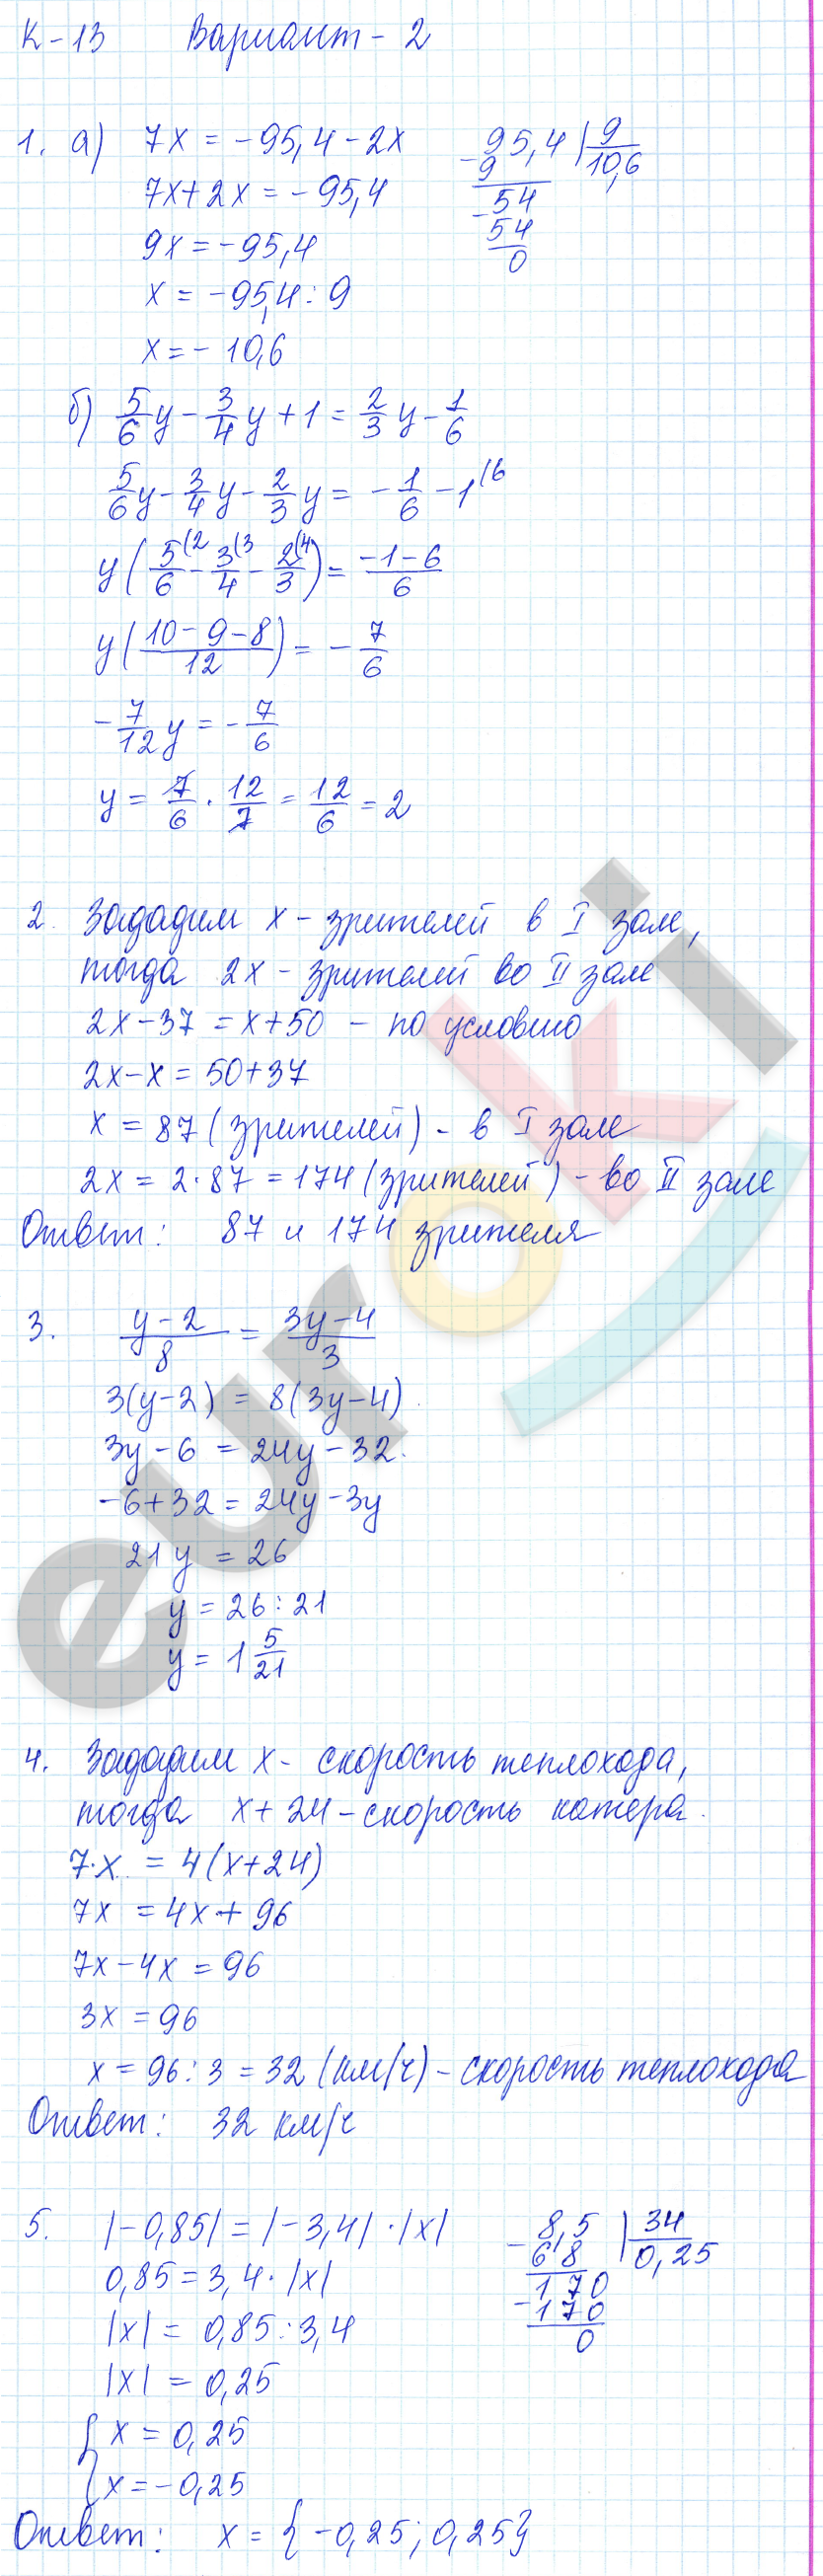 К-13 Вариант-2
1. а) 7x = -95,4-2x
7x+2x = -95,4
9x = -95,4
x = -95,4:9
x = -10,6
-95,4 | 9
9 10,6
-54
54
0
б) 5/6 y - 3/4 y + 1 = 2/3 y - 1/6
5/6 y - 3/4 y - 2/3 y = -1/6 - 1 (6
y (5/6 (2 - 3/4 (3 - 2/3 (4) = -1-6/6
y (10-9-8/12) = -7/6
-7/12 y = -7/6
y = 7/6 · 12/7 = 12/6 = 2
2. Зададим x - зрителей в I зале,
тогда 2x - зрителей во II зале
2x-37 = x+50 - по условию
2x-x = 50+37
x = 87 (зрителей) - в I зале
2x = 2·87 = 174 (зрителей) - во II зале
Ответ: 87 и 174 зрителя
3. y-2/8 = 3y-4/3
3(y-2) = 8(3y-4)
3y-6 = 24y-32
-6+32 = 24y-3y
21y = 26
y = 26:21
y = 1 5/21
4. Зададим x - скорость теплохода,
тогда x+24 - скорость катера.
7·x = 4(x+24)
7x = 4x+96
7x-4x = 96
3x = 96
x = 96:3 = 32 (км/ч) - скорость теплохода
Ответ: 32 км/ч
5. |-0,85| = |-3,4|·|x|
0,85 = 3,4·|x|
|x| = 0,85:3,4
|x| = 0,25
{ x = 0,25
x = -0,25
-8,5 | 34
68 0,25
170
-170
0
Ответ: x = {-0,25; 0,25}
euroki